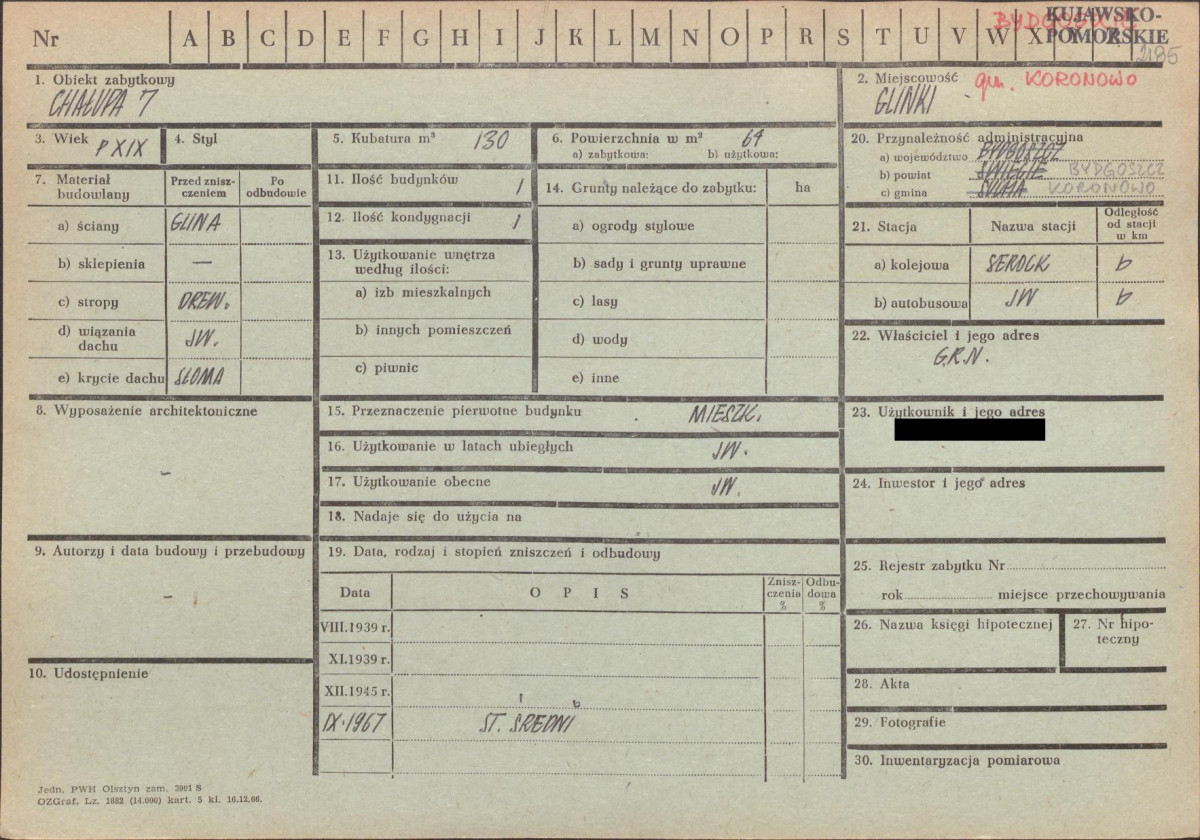 Nr A B C D E F G H I J K L M N O P R S T U V W X Y Z
BYDGOSZCZ
KUJAWSKO-
POMORSKIE
2195
1. Obiekt zabytkowy
CHAŁUPA 7
2. Miejscowość gm. KORONOWO
GLINKI
3. Wiek P XIX
4. Styl
5. Kubatura m³ 130
6. Powierzchnia w m² 64
a) zabytkowa: b) użytkowa:
7. Materiał budowlany
Przed znisz-
czeniem
Po
odbudowie
a) ściany GLINA
b) sklepienia —
c) stropy DREW.
d) wiązania
dachu JW.
e) krycie dachu SŁOMA
11. Ilość budynków 1
12. Ilość kondygnacji 1
13. Użytkowanie wnętrza
według ilości:
a) izb mieszkalnych
b) innych pomieszczeń
c) piwnic
14. Grunty należące do zabytku: ha
a) ogrody stylowe
b) sady i grunty uprawne
c) lasy
d) wody
e) inne
20. Przynależność administracyjna
a) województwo BYDGOSZCZ
b) powiat ŚWIECIE BYDGOSZCZ
c) gmina KORONOWO
21. Stacja
Nazwa stacji
Odległość
od stacji
w km
a) kolejowa SEROCK 6
b) autobusowa JW 6
22. Właściciel i jego adres
G.R.N.
8. Wyposażenie architektoniczne
–
15. Przeznaczenie pierwotne budynku MIESZK.
16. Użytkowanie w latach ubiegłych JW.
17. Użytkowanie obecne JW.
18. Nadaje się do użycia na
23. Użytkownik i jego adres
24. Inwestor i jego adres
9. Autorzy i data budowy i przebudowy
–
10. Udostępnienie
19. Data, rodzaj i stopień zniszczeń i odbudowy
Data
O P I S
Znisz-
czenia
%
Odbu-
dowa
%
VIII.1939 r.
XI.1939 r.
XII.1945 r.
IX.1967 ST. ŚREDNI
25. Rejestr zabytku Nr
rok miejsce przechowywania
26. Nazwa księgi hipotecznej
27. Nr hipo-
teczny
28. Akta
29. Fotografie
30. Inwentaryzacja pomiarowa
Jedn. PWH Olsztyn zam. 3991 S
OZGraf. Lz. 1882 (14.000) kart. 5 kl. 16.12.66.